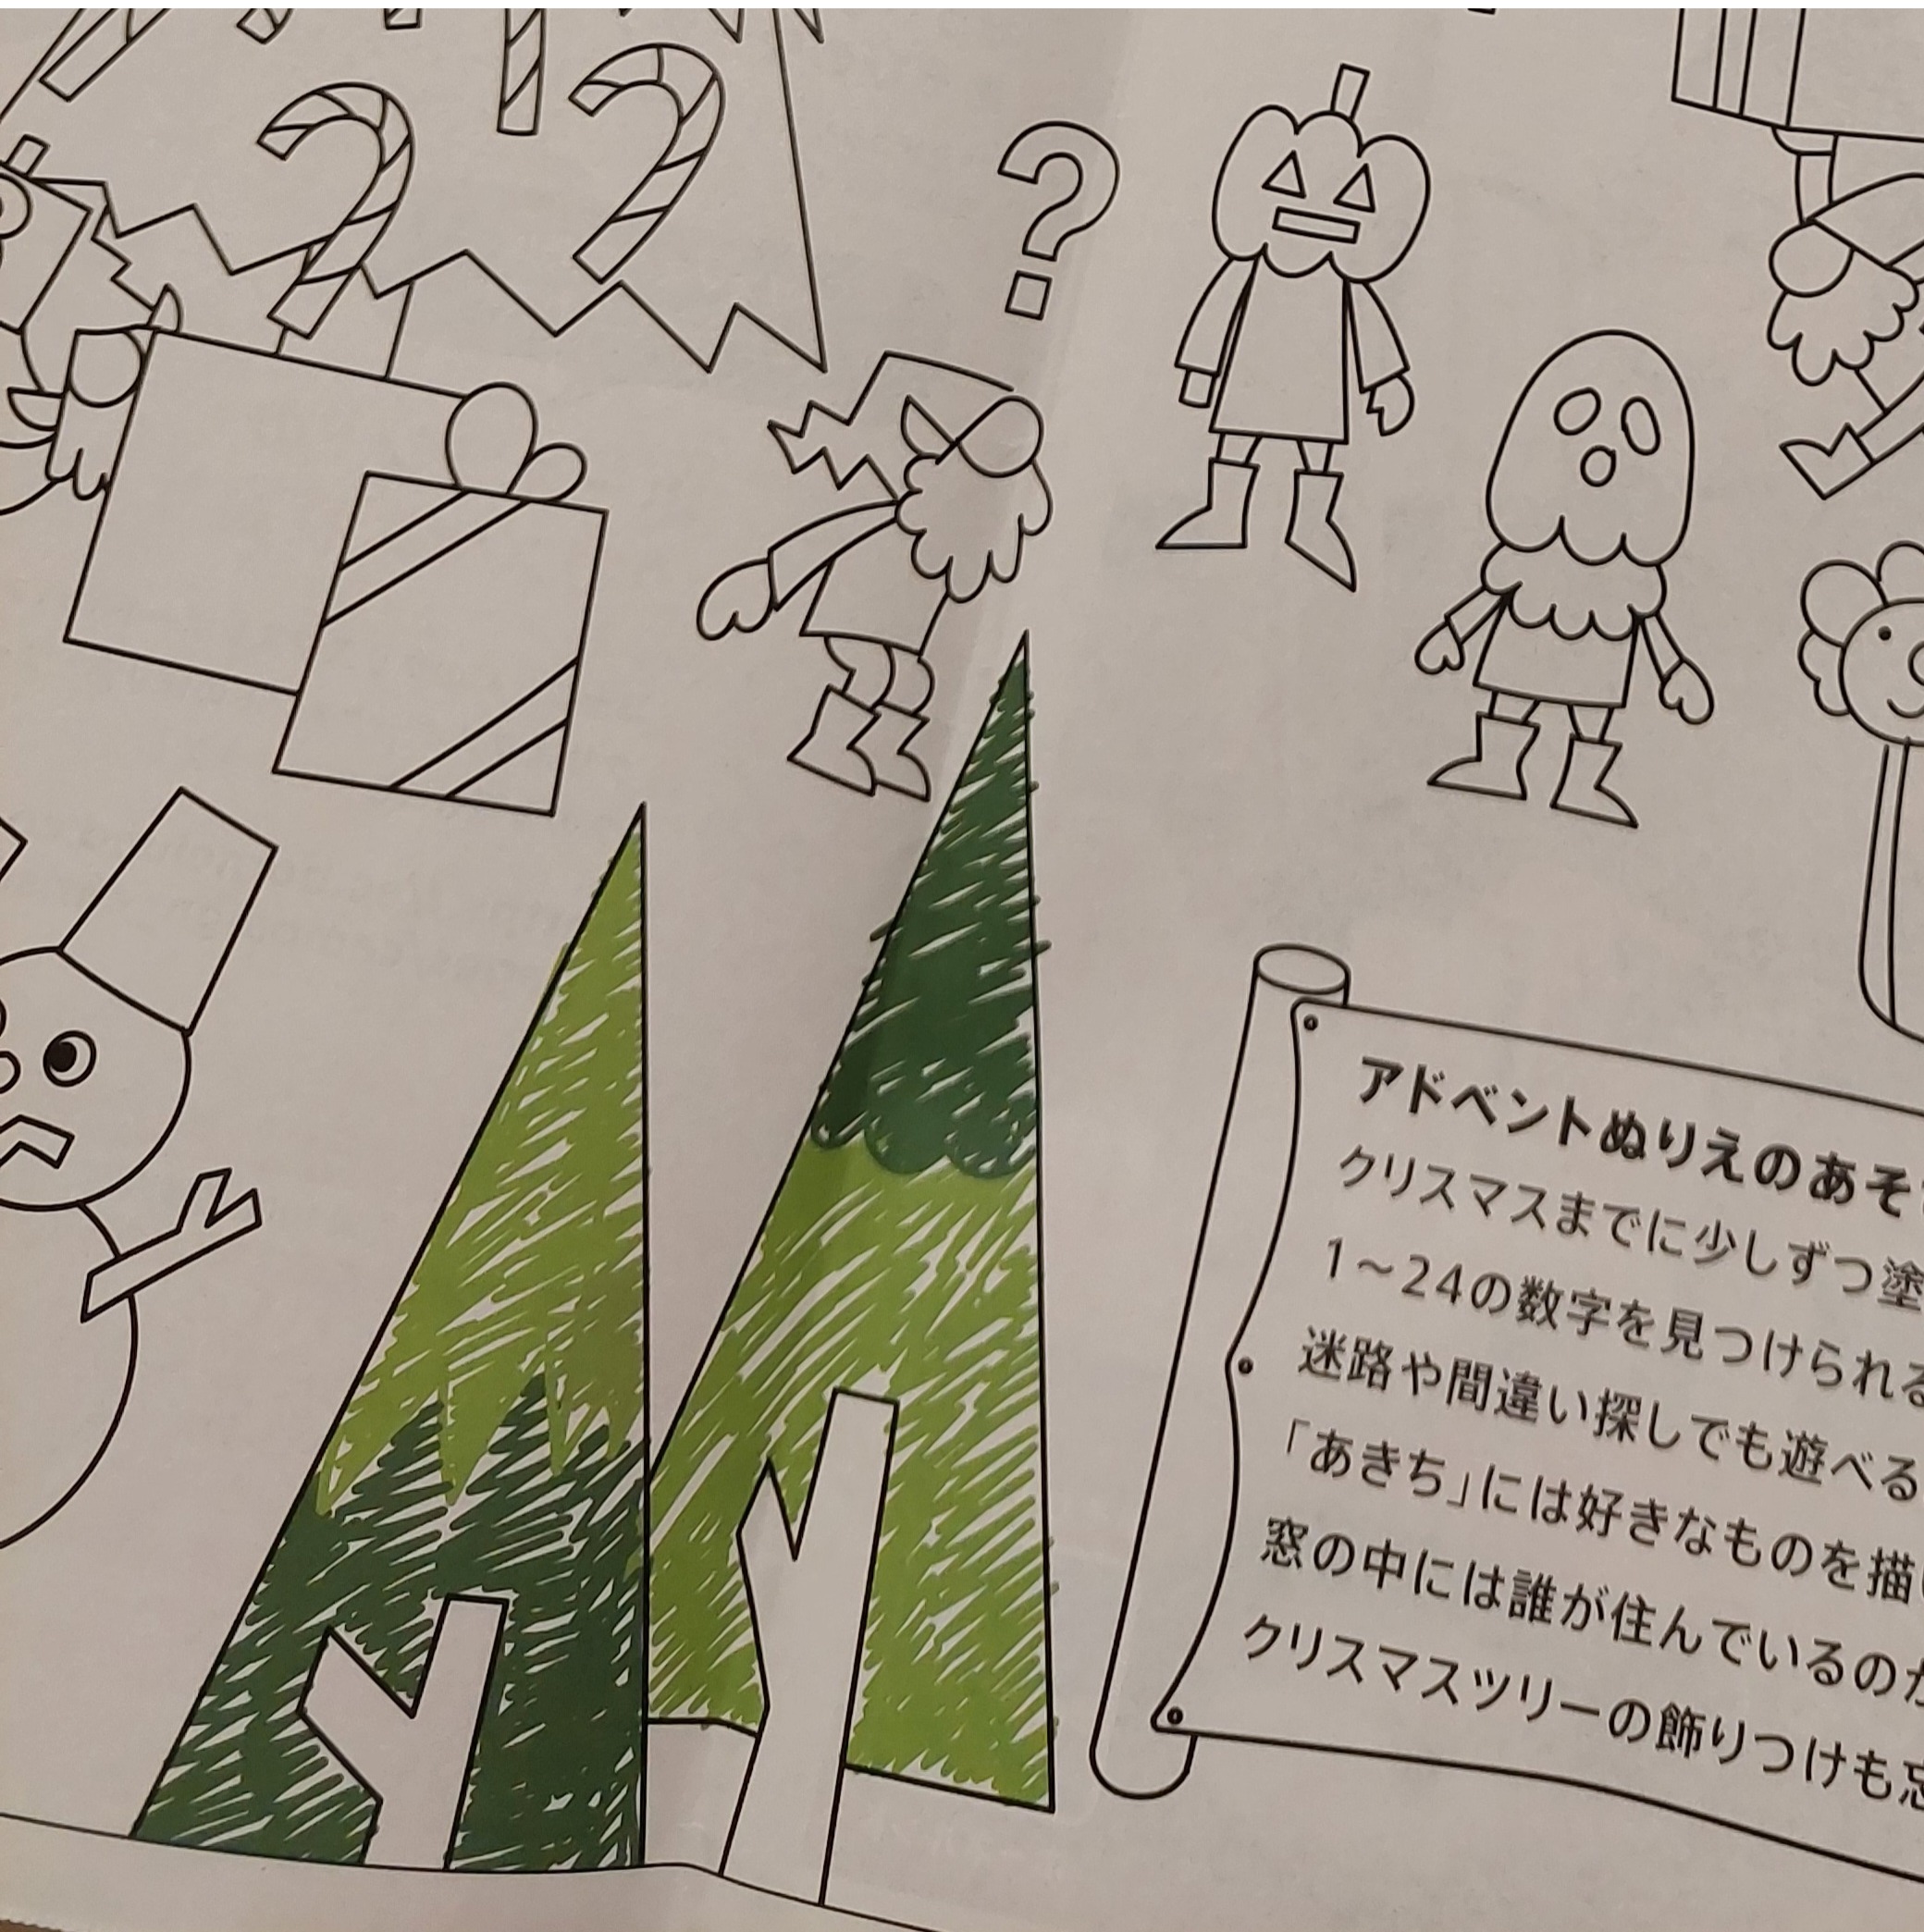 ?
アドベントぬりえのあそ
クリスマスまでに少しずつ塗
1～24の数字を見つけられる
迷路や間違い探しでも遊べる
「あきち」には好きなものを描
窓の中には誰が住んでいるのか
クリスマスツリーの飾りつけも忘